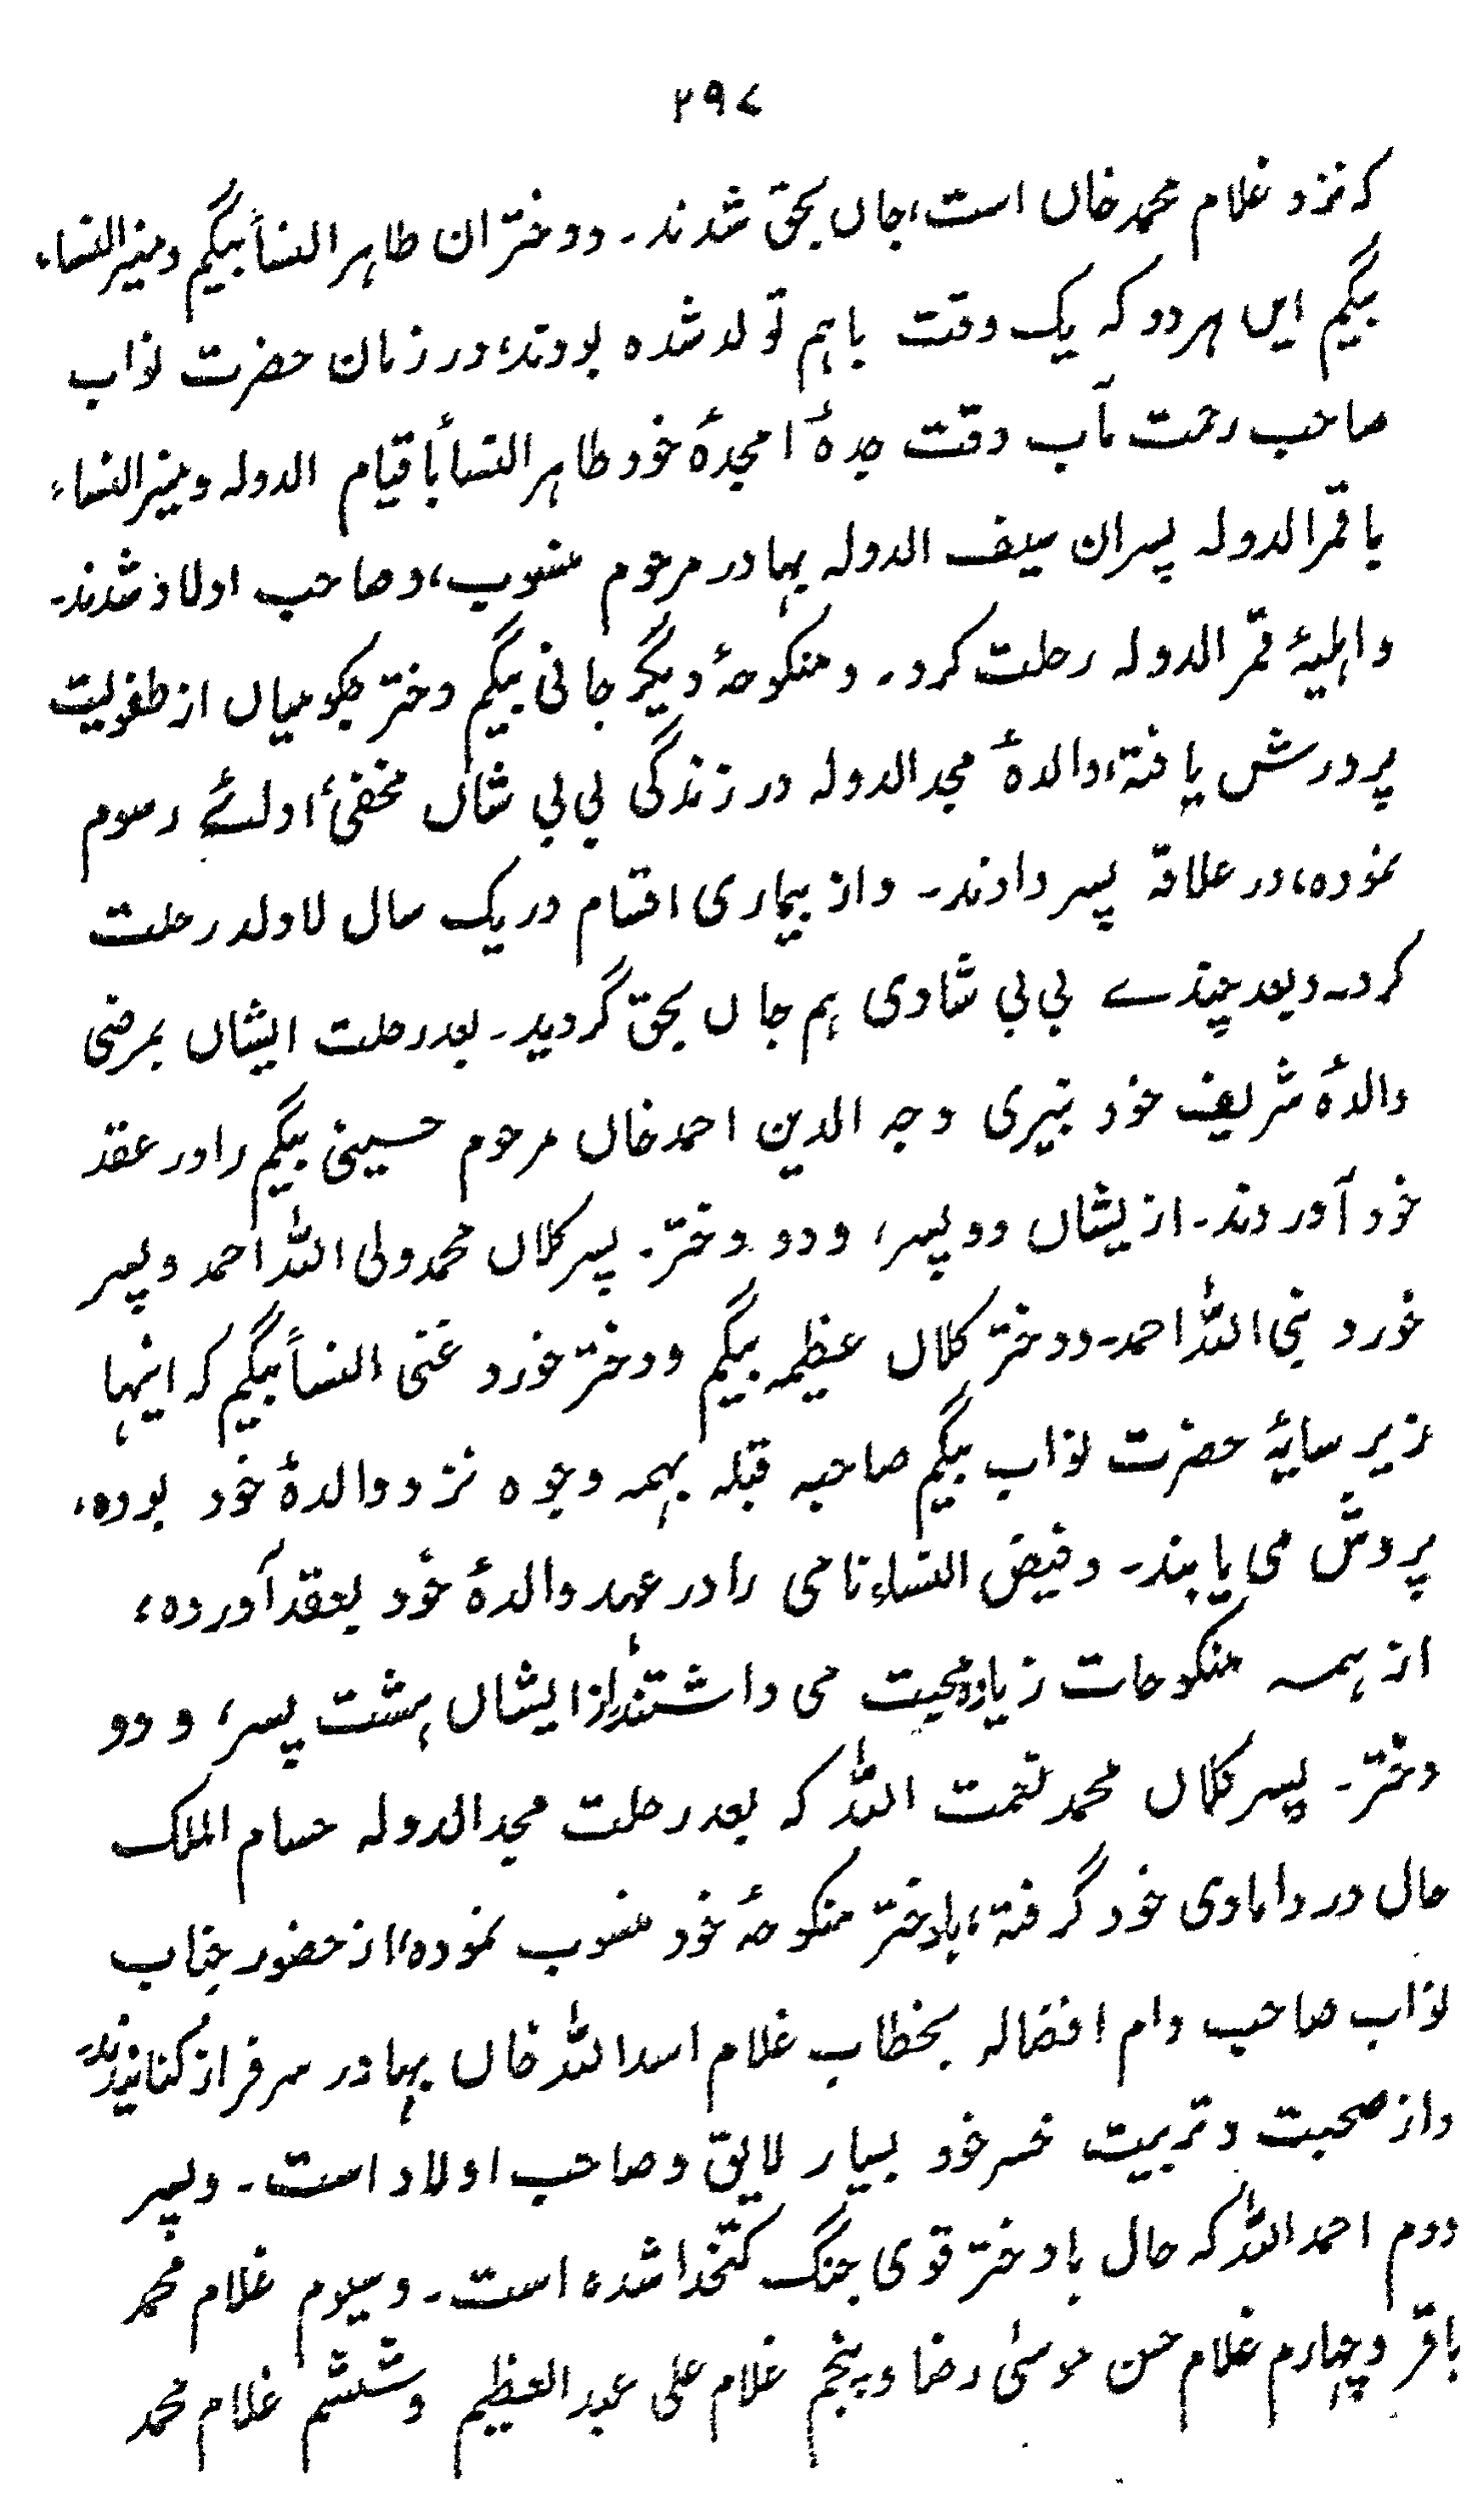 ۲۹۷
که نزد غلام محمد خاں است، جاں بحق شدند۔ دو دختران طاہر النسأ بیگم و منیر النساء
بیگم ایں ہر دو که یک وقت باہم تولد شده بودند، در زمان حضرت نواب
صاحب رحمت مآب وقت جدۂ امجدۂ خود طاہر النسأ با قیام الدوله و منیر النساء
با قمر الدوله پسران سیف الدوله بہادر مرحوم منسوب، و صاحب اولاد شدند۔
و اہلیۂ قمر الدوله رحلت کرد۔ و منکوحۂ دیگر جانی بیگم دختر جکو میاں از طفولیت
پرورش یافتۂ والدۂ مجد الدوله در زندگی بی بی شاں مخفی ادائے رسوم
نموده، در علاقه پسر دادند۔ و از بیماری اقسام در یک سال لاولد رحلت
کرد۔ و بعد چندے بی بی شادی ہم جاں بحق گردید۔ بعد رحلت ایشاں بمرضی
والدۂ شریف خود نبیری وجه الدین احمد خاں مرحوم حسینی بیگم را در عقد
خود آوردند۔ ازیشاں دو پسر، و دو دختر۔ پسر کلاں محمد ولی اللہ احمد و پسر
خورد نبی اللہ احمد۔ و دختر کلاں عظیمه بیگم و دختر خورد غنی النسأ بیگم که اینہا
زیر سایۂ حضرت نواب بیگم صاحبه قبله بہمه وجوه نزد والدۂ خود بوده،
پروش می یابند۔ و فیض النساء نامی را در عہد والدۂ خود بعقد آورده،
از ہمه منکوحات زیاده محبت می داشتند۔ از ایشاں ہشت پسر، و دو
دختر۔ پسر کلاں محمد نعمت اللہ که بعد رحلت مجد الدوله حسام الملک
حال در دامادی خود گرفته، با دختر منکوحۂ خود منسوب نموده، از حضور جناب
نواب صاحب دام افضاله بخطاب غلام اسد اللہ خاں بہادر سرفراز کنانیدند۔
و از صحبت و تربیت خسر خود بسیار لایق و صاحب اولاد است۔ و پسر
دوم احمد اللہ که حال با دختر قوی جنگ کتخدا شده است۔ و سیوم غلام محمد
باقر و چہارم غلام حسن موسیٰ رضا و پنجم غلام علی عبد العظیم و ششم غلام محمد